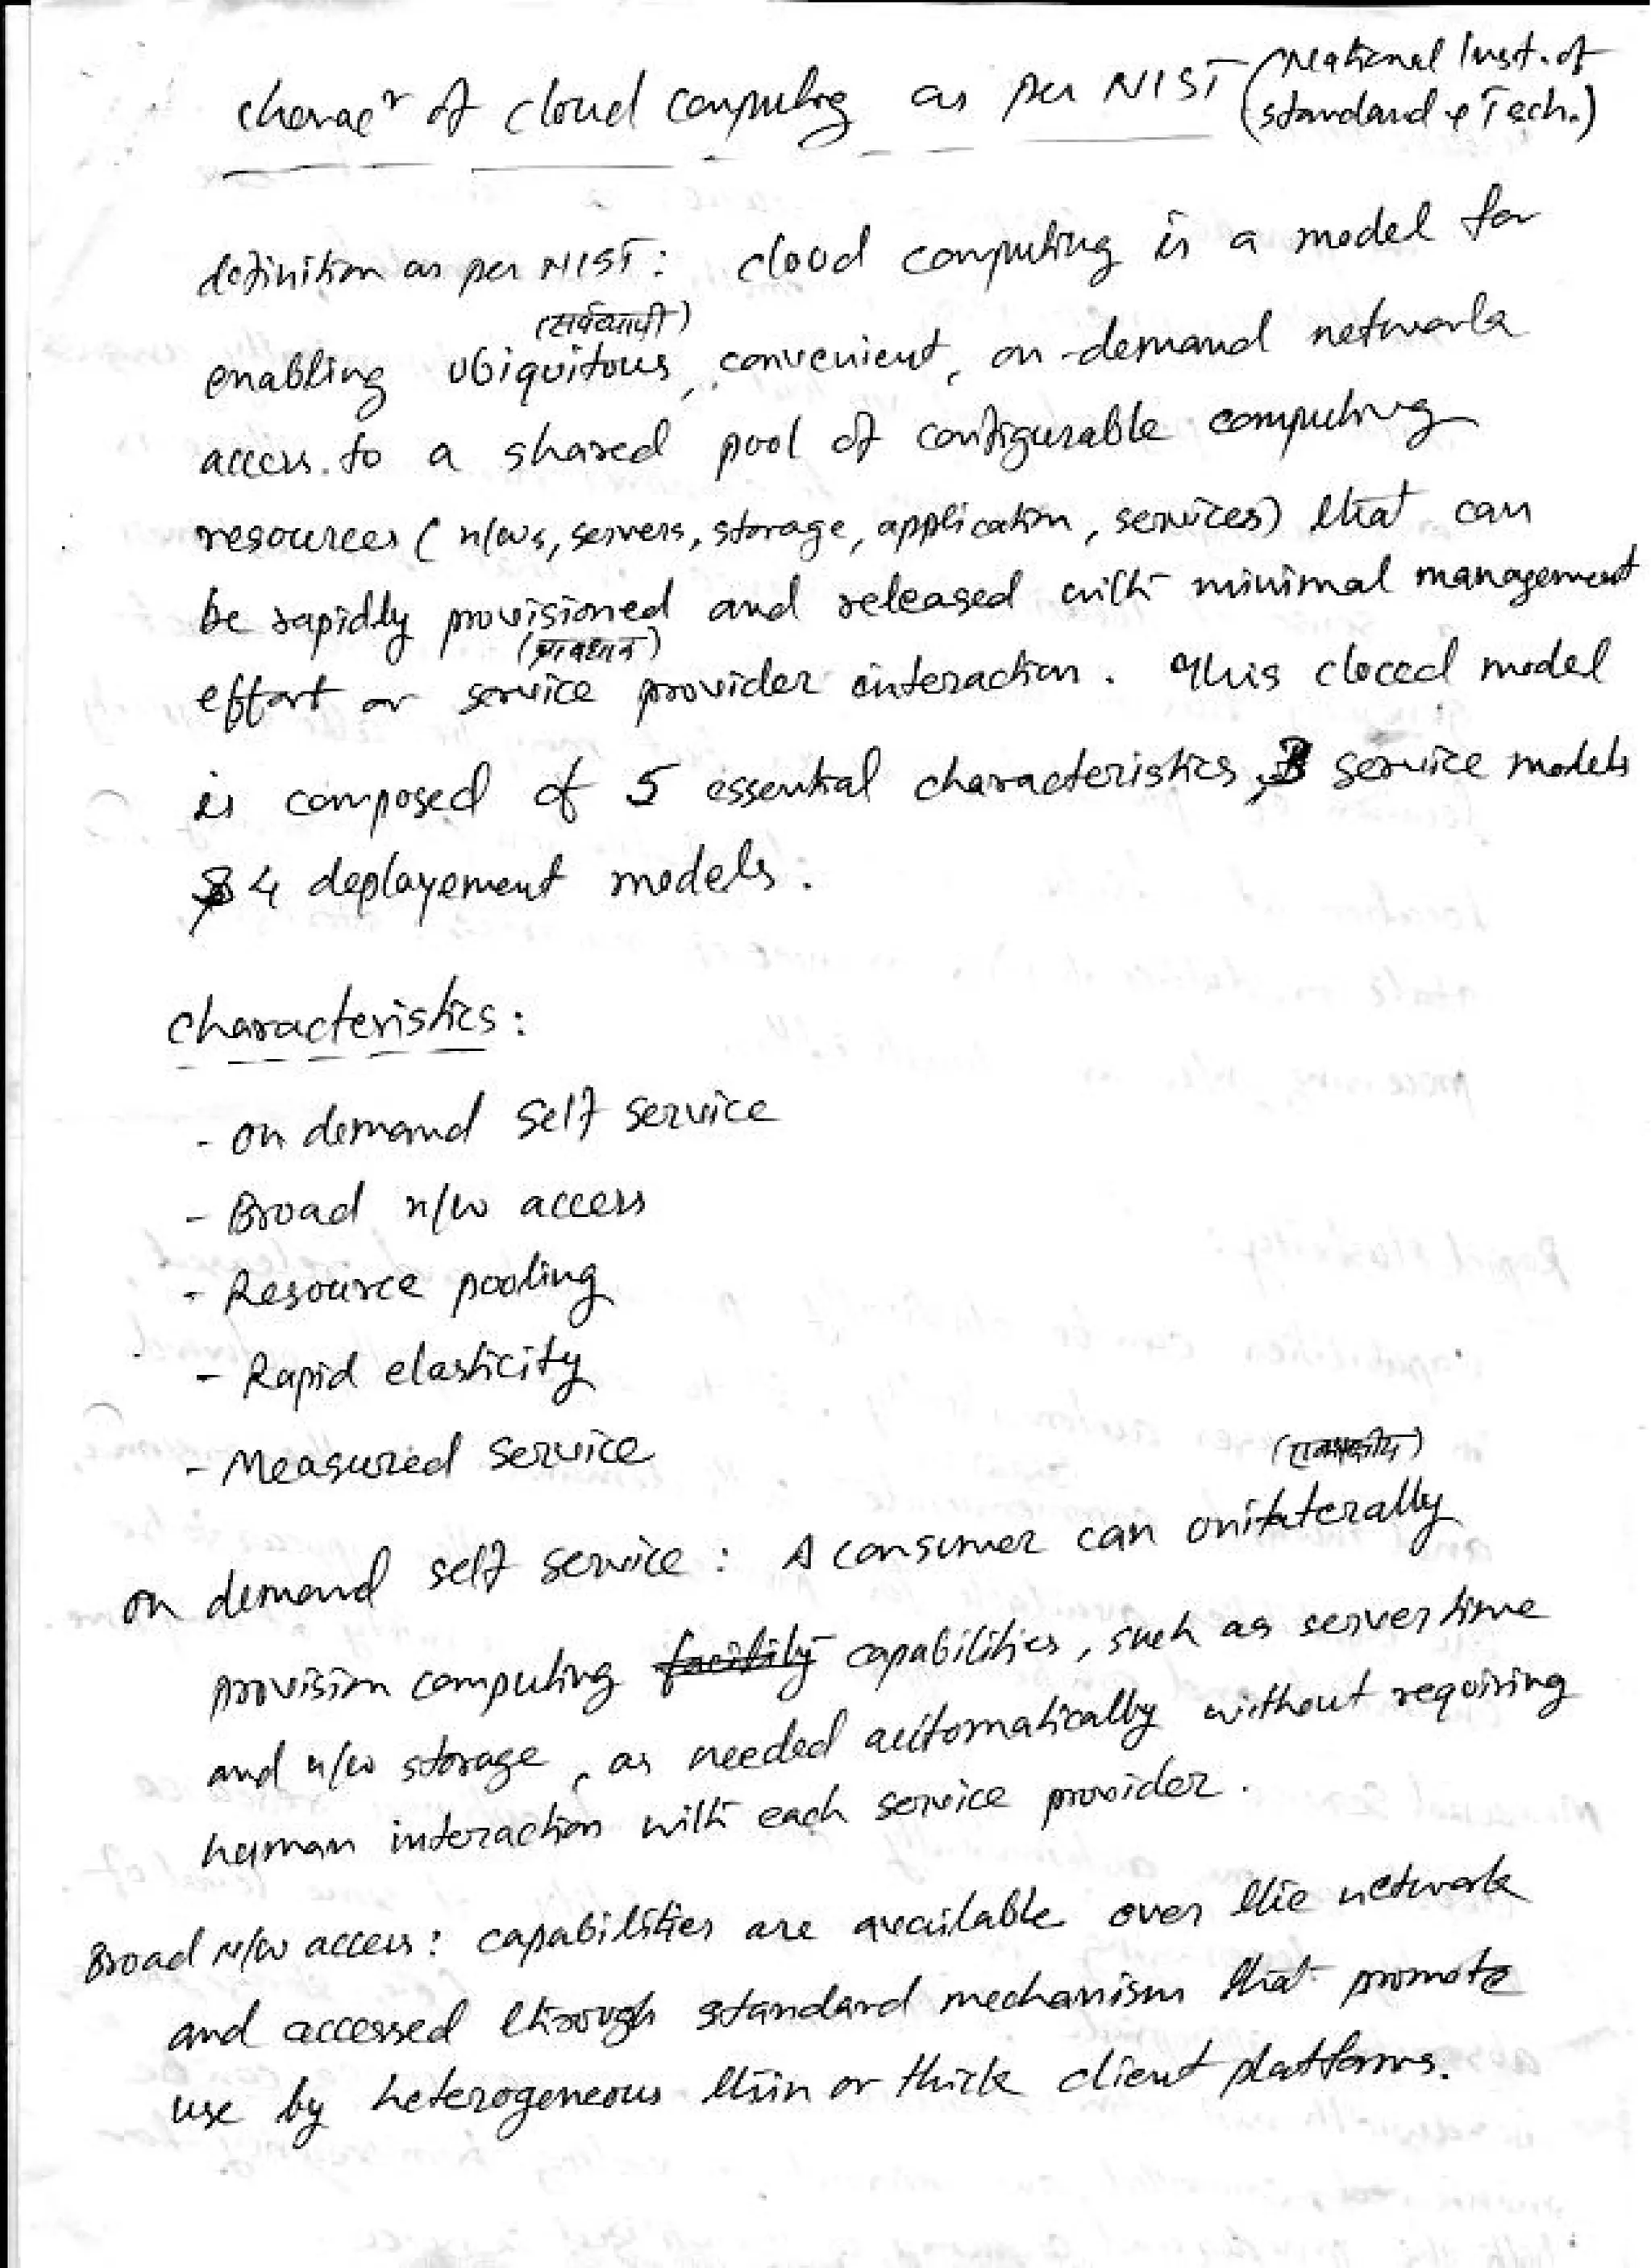 charac^r of cloud computing as per NIST (National Inst. of
standard & Tech.)
definition as per NIST: cloud computing is a model for
(सर्वव्यापी)
enabling ubiquitous, convenient, on-demand network
access to a shared pool of configurable computing
resources (n/ws, servers, storage, application, services) that can
be rapidly provisioned and released with minimal management
(प्रावधान)
effort or service provider interaction. This cloced model
is composed of 5 essential characteristics, 3 service models
4 deplayement models.
characteristics:
- on demand self service
- Broad n/w access
- Resource pooling
- Rapid elasticity
- Measured service
on demand self service: A consumer can
provision computing facility capabilities, such as server time
and n/w storage, as needed automatically without requiring
human interaction with each service provider.
Broad n/w access: capabilities are available over the network
and accessed through standard mechanism that promote
use by heterogeneous thin or thick client platforms.